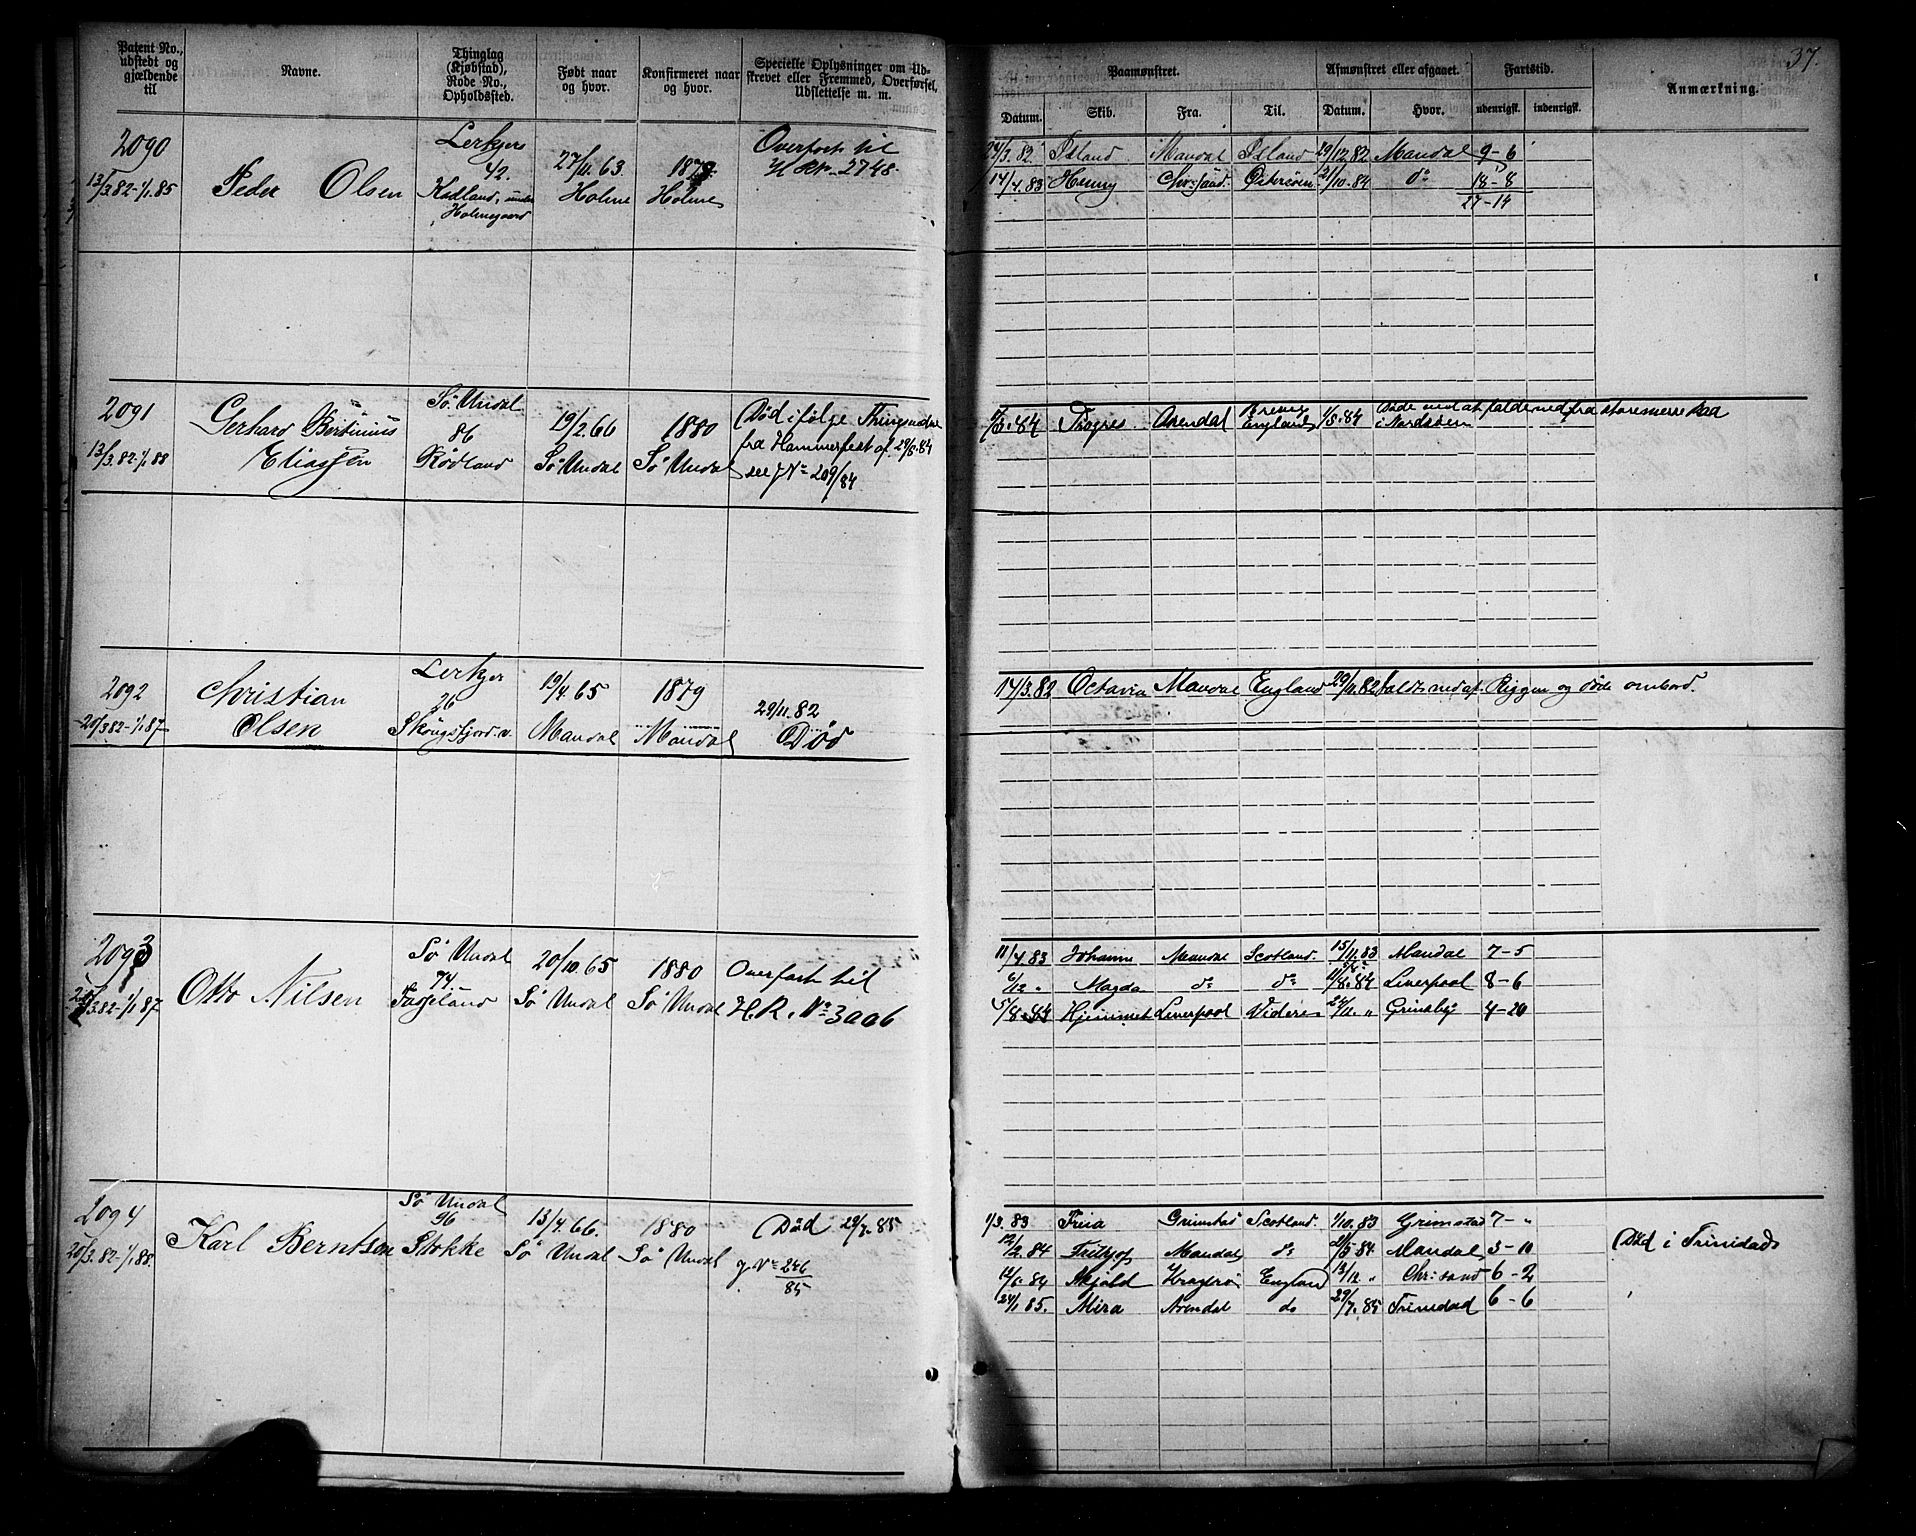 37.
Patent No., udstedt og gjældende til
Navne.
Thinglag (Kjøbstad), Rode No., Opholdssted.
Født naar og hvor.
Konfirmeret naar og hvor.
Specielle Oplysninger om Udskrevet eller Fremmed, Overførsel, Udslettelse m. m.
Paamønstret.
Afmønstret eller afgaaet.
Fartstid.
Anmærkning.
Datum. Skib. Fra. Til. Datum. Hvor. udenrigsk. indenrigsk.
2090
13/3.82-1/1.85
Peder Olsen
42.
Holme
Holme
Overført til
2748.
Island Mandal Island 29/12.82 Mandal 9-6
14/4.83 Henry Chr:sand. 31/10.84 do 18-8
27-14
2091
13/3.82-1/1.88
Gerhard Bertinius
Eliassen
Sø Undal
86
Rødland
19/2.66
Sø Undal
1880
Sø Undal
Død ifølge
fra Hammerfest af 29/8.84
see J. No 209/84
Arendal England
i Nordsøen
2092
20/3.82-1/1.87
Christian
Olsen
26
19/4.65
Mandal
1879
Mandal
29/11.82
Død
14/3.82 Octavia Mandal England 29/11.82 faldt ned af Riggen og døde ombord.
2093
Otto Nilsen
Sø Undal
74.
Fageland
20/10.65
Sø Undal
1880
Sø Undal
Overført til
H.R. No 3006
11/4.83 Johanne Mandal Scotland. 15/11.83 Mandal 7-5
6/12 " Magda do do Liverpool 8-6
5/8.84 Hjemmet Liverpool Videre Grimsby 4-20
2094
20/3.82-1/1.88.
Karl Berntsen
Sø Undal
96
Stokke
13/4.66.
Sø Undal
1880
Sø Undal
Død 29/7.85
J. No 246/85
1/3.83 Freia Grimstad Scotland. 1/10.83 Grimstad 7-"
12/2.84 Fritjof Mandal do Mandal 3-10
Skjold Kragerø England 13/12 " Chr:sand 6-2
24/1.85. Mira Arendal do 29/7.85 Trinidad 6-6
Død i Trinidad